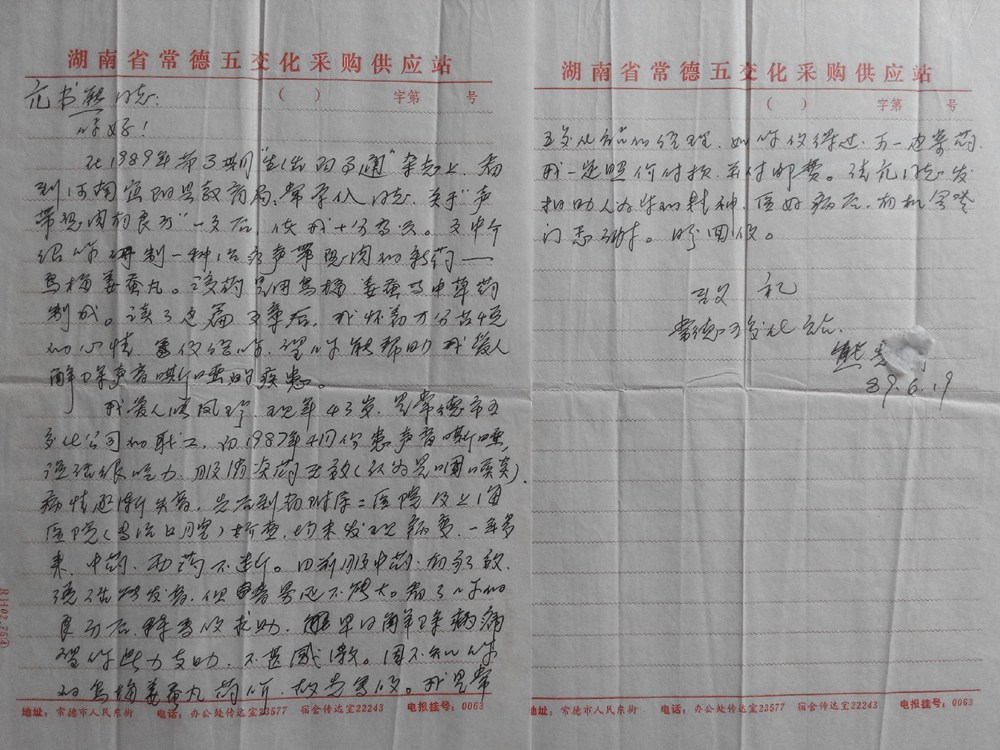 湖南省常德五交化采购供应站
( ) 字第 号
范书熙同志:
你好!
从1989年第3期"生活的可通"杂志上,看
到河南宜阳县教育局,常 同志,关于"声
带息肉的良方"一文后,使我十分高兴。文中介
绍你研制一种治疗声带息肉的新药——
乌梅姜蚕丸。该药是用乌梅、姜蚕等中草药
制成。读了这篇文章后,我怀着万分焦
的心情,写信给你,望你能帮助我爱人
解除声音嘶哑的疾患。
我爱人 凤珍,现年43岁,是常德市五
交化公司的职工,白1987年4月份患声音嘶哑,
说话很吃力,服消炎药无效(认为是咽喉炎)
病情逐渐失音,先后到 附属二医院及上海
医院( )检查,均未发现病变,一年多
来,中药、西药不断。目前服中药,有好效,
现在能发音,但声音还不够大。看了你的
良方后,特写信求助,愿早日解除病痛
望你鼎力支助,不甚感激。因不知你
的乌梅姜蚕丸药价,故先写信。我是常
地址:常德市人民东街 电话:办公处传达室23577 宿舍传达室22243 电报挂号:0063
湖南省常德五交化采购供应站
( ) 字第 号
五交化站"的经理,如你信得过,另一边寄药,
我一定照价付款,并付邮费。请范同志发
扬助人为乐的精神,医好病后,有机会登
门志谢。盼回信。
致 礼
常德五交化站
熊
89.6.19
地址:常德市人民东街 电话:办公处传达室23577 宿舍传达室22243 电报挂号:0063